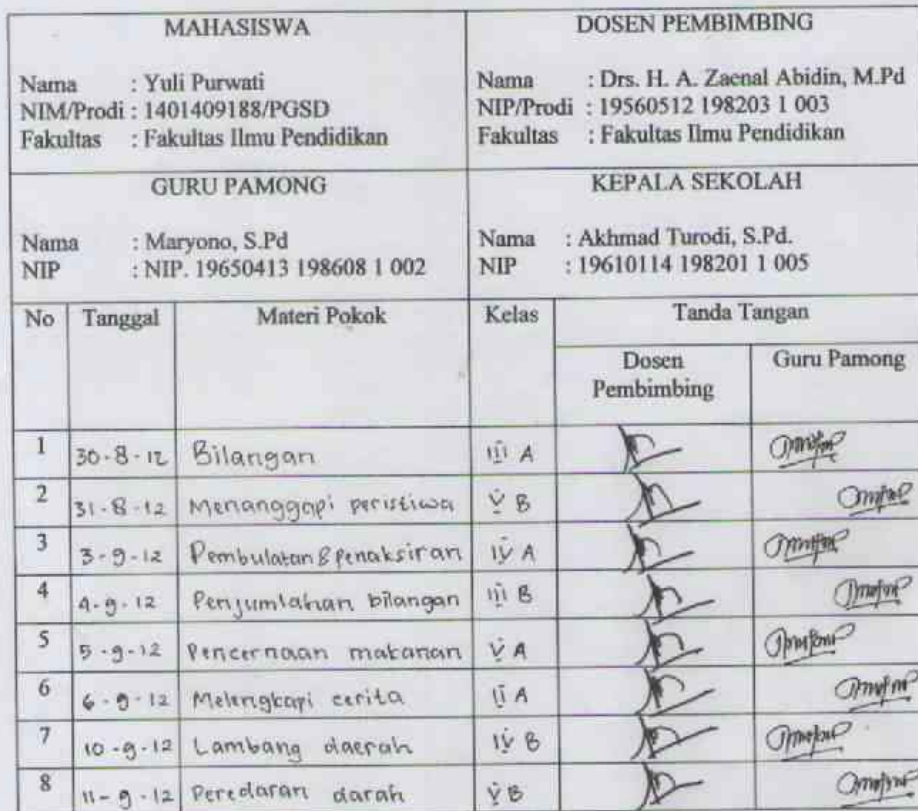 MAHASISWA
Nama : Yuli Purwati
NIM/Prodi : 1401409188/PGSD
Fakultas : Fakultas Ilmu Pendidikan
DOSEN PEMBIMBING
Nama : Drs. H. A. Zaenal Abidin, M.Pd
NIP/Prodi : 19560512 198203 1 003
Fakultas : Fakultas Ilmu Pendidikan
GURU PAMONG
Nama : Maryono, S.Pd
NIP : NIP. 19650413 198608 1 002
KEPALA SEKOLAH
Nama : Akhmad Turodi, S.Pd.
NIP : 19610114 198201 1 005
No Tanggal Materi Pokok Kelas Tanda Tangan
Dosen Pembimbing Guru Pamong
1 30-8-12 Bilangan III A
2 31-8-12 Menanggapi peristiwa V B
3 3-9-12 Pembulatan & penaksiran IV A
4 4-9-12 Penjumlahan bilangan III B
5 5-9-12 Pencernaan makanan V A
6 6-9-12 Melengkapi cerita II A
7 10-9-12 Lambang daerah IV B
8 11-9-12 Peredaran darah V B